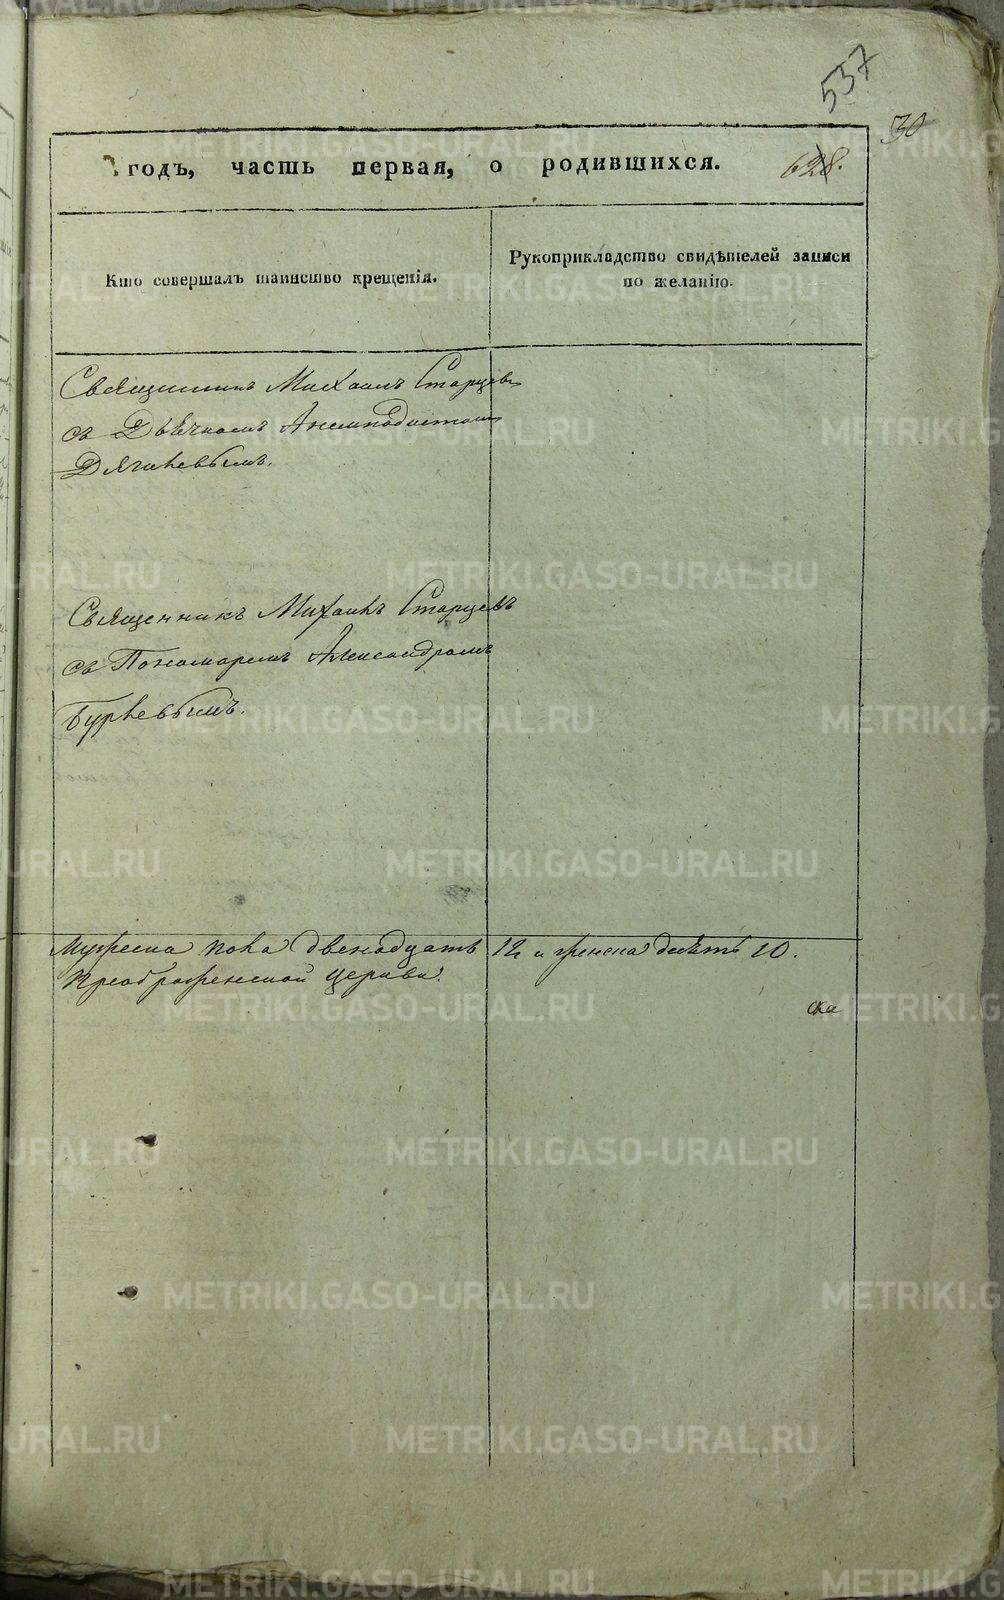 537
30
годъ, часть первая, о родившихся.
628.
Кто совершалъ таинство крещенія.
Рукоприкладство свидѣтелей записи
по желанію.
Священникъ Михаилъ Старцевъ
съ Дьячкомъ Анемподистом
Дягилевымъ.
Священникъ Михаилъ Старцевъ
съ Пономаремъ Александромъ
Мужеска пола двенадцать 12 и женска десять 10.
Преображенской Церкви.
ска
METRIKI.GASO-URAL.RU